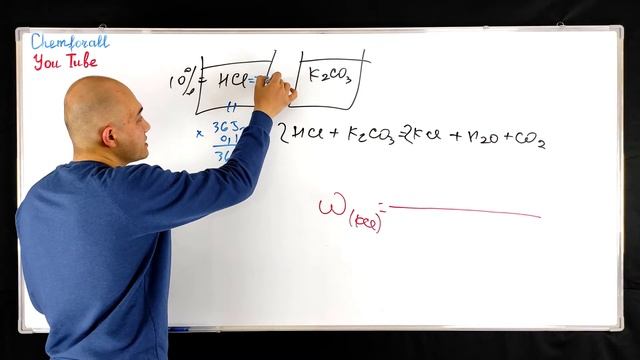 Chemforall
You Tube
10% = HCl = K₂CO₃
× 365
0,1
36
2HCl + K₂CO₃ = 2KCl + H₂O + CO₂
ω(KCl) =